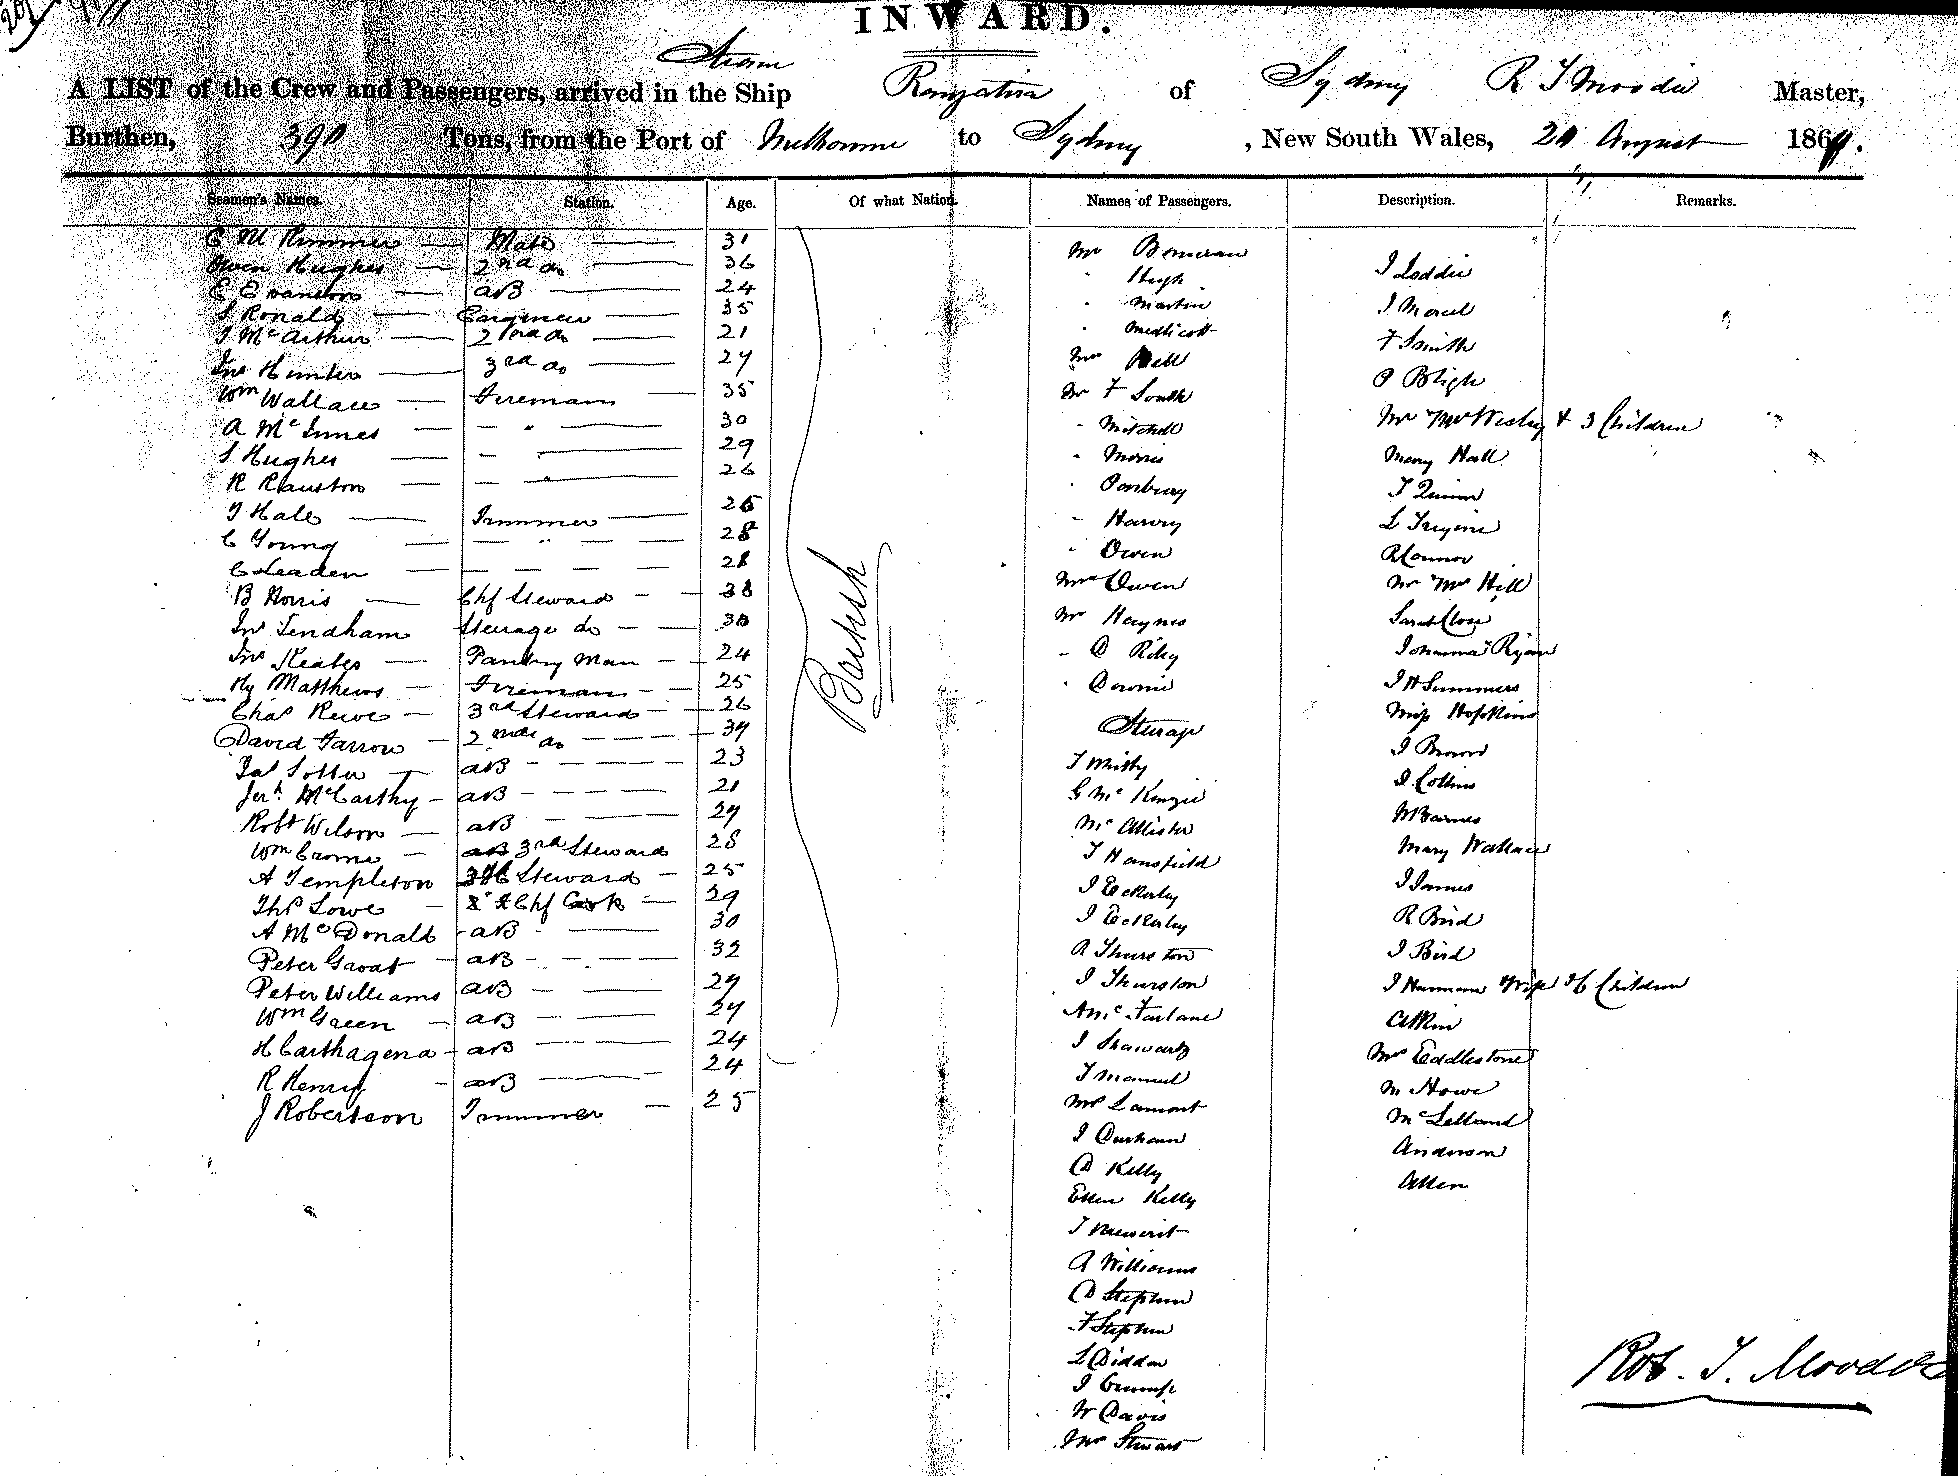 INWARD.
Steam
A LIST of the Crew and Passengers, arrived in the Ship Rangatira of Sydney R T Moodie Master,
Burthen, 390 Tons, from the Port of Melbourne to Sydney, New South Wales, August 186
Seamen's Names. Station. Age. Of what Nation. Names of Passengers. Description. Remarks.
C M Rimmer Mate 31
Owen Hughes 2nd do 36
E Evanston AB 24
S Ronald Engineer 35
J McArthur 2nd do 21
Jno Hunter 3rd do 27
Wm Wallace Fireman 35
A McInnes " 30
S Hughes " 29
R Rauston " 26
T Hale Trimmer 26
C Young " 28
C Leaden 28
B Norris Chf Steward 38
Jno Lendham Steerage do 30
Jno Keates Pantry Man 24
Hy Matthews Fireman 25
Chas Reeve 3rd Steward 26
David Farrow 2nd do 39
Jas AB 23
Jerh McCarthy AB 21
Robt Wilson AB 29
Wm Crome AB 3rd Steward 28
A Templeton Steward 25
Thos Lowe Chf Cook 29
A McDonald AB 30
Peter Groat AB 32
Peter Williams AB 29
Wm Green AB 29
H Carthagena AB 24
R Henry AB 24
J Robertson Trimmer 25
British
Mr
" Hugh
" Martin
" Medlicott
Mrs Bell
Mr F South
" Mitchell
" Morris
" Panbury
" Harvey
" Owen
Mrs Owen
Mr Haynes
" D Riley
" Downie
Steerage
T Mitty
G McKinzie
McAllister
T Hansfield
J Eckerley
J Eckerley
A Thurston
J Thurston
A McFarlane
J Shawartz
T Manuel
Mrs Lamont
J Durham
D Kelly
Ellen Kelly
T
A Williams
D Stephen
F Stephen
L Diddon
J Crump
W Davis
Mrs Stewart
J Loddie
J Morel
F Smith
P Bligh
Mr Mrs Westry & 3 Children
Mary Hall
T Quinn
L
R Connor
Mr Mrs Hill
Sarah Close
Johanna Ryan
J H Summers
Miss Hopkins
J Brown
J Collins
M Barnes
Mary Wallace
J James
R Bird
J Bird
J Wife & 6 Children
Atkin
Mrs Eddlestone
M Howe
McLelland
Anderson
Allen
Rob. T. Moodie